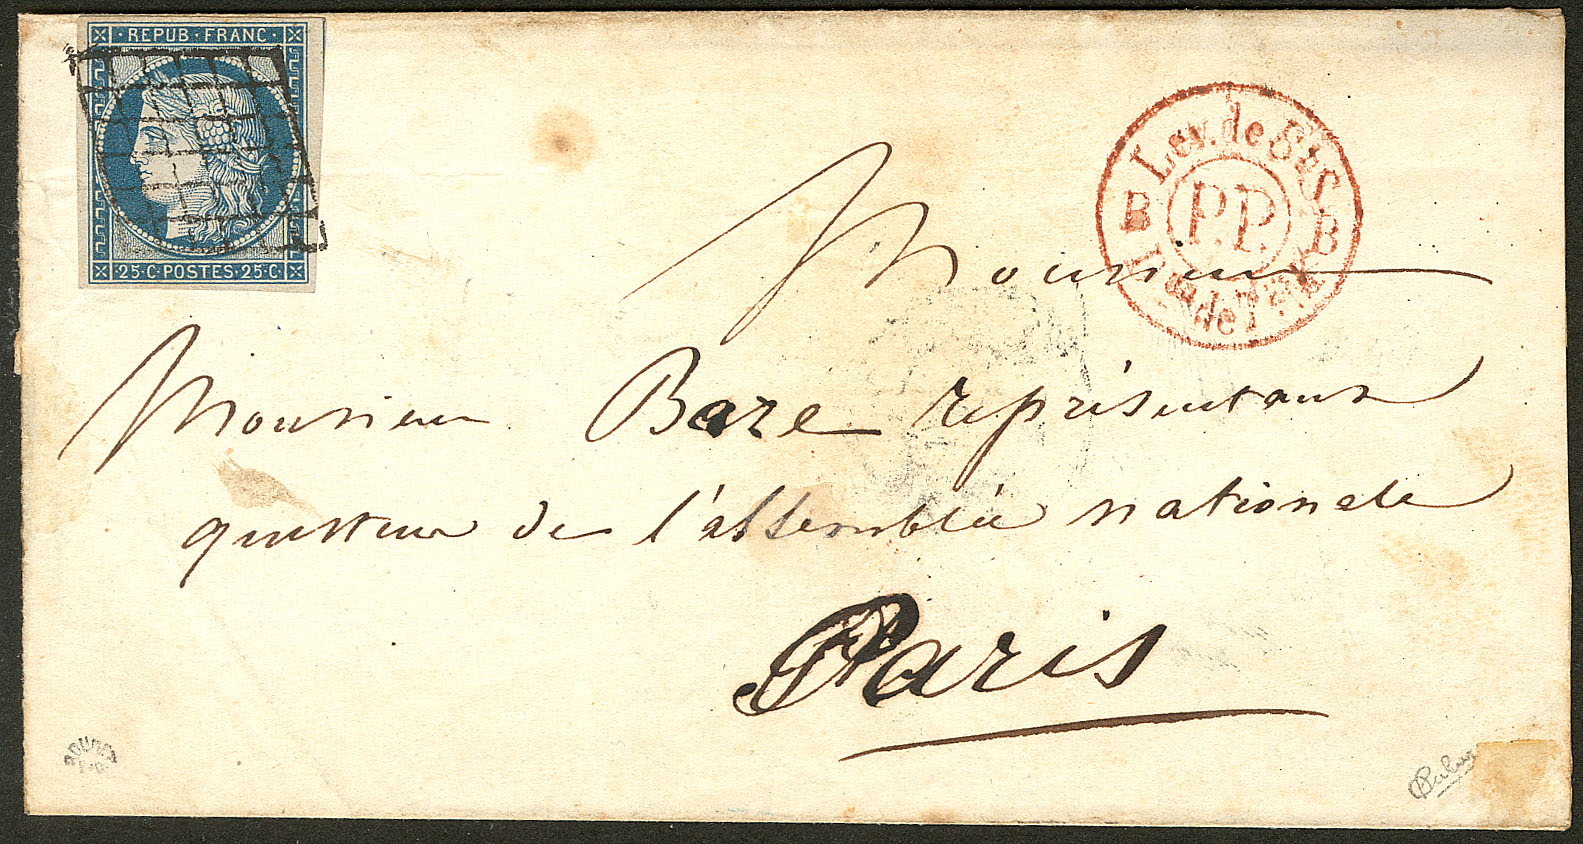 REPUB·FRANC·
25·C·POSTES·25·C·
Lev. de 5h S.
B P.P. B
de
Monsieur
Monsieur Baze représentant
questeur de l'assemblée nationale
Paris
ROUMET